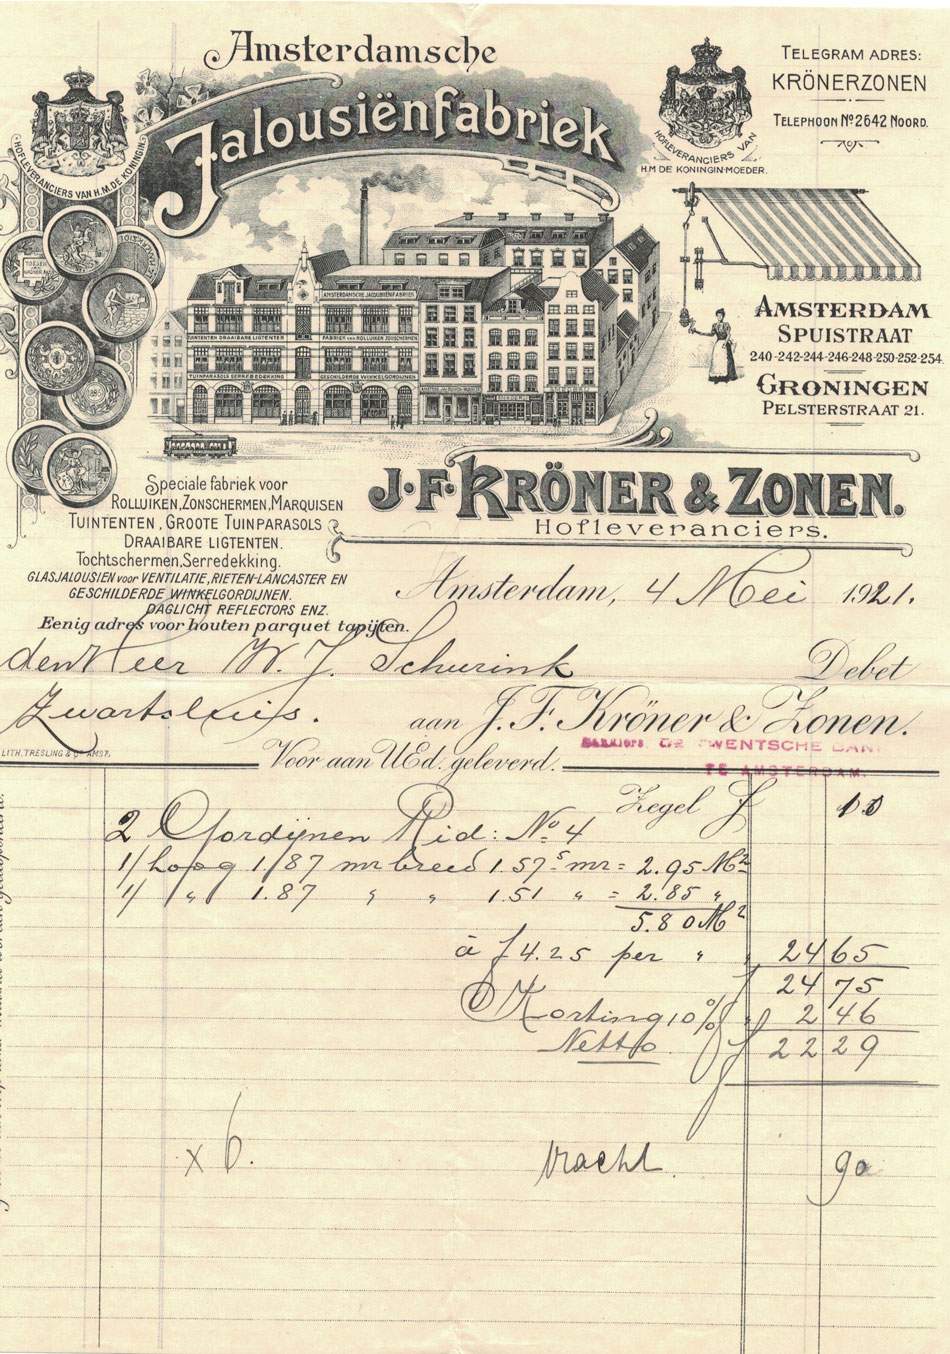 Amsterdamsche
Jalousiënfabriek
HOFLEVERANCIERS VAN H.M. DE KONINGIN
HOFLEVERANCIERS VAN
H.M DE KONINGIN-MOEDER.
TELEGRAM ADRES:
KRÖNERZONEN
TELEPHOON No 2642 NOORD.
AMSTERDAMSCHE JALOUSIENFABRIEK
TENTEN DRAAIBARE LIGTENTEN
FABRIEK VAN ROLLUIKEN ZONSCHERMEN
TUINPARASOLS SERREDEKKING
GESCHILDERDE WINKELGORDIJNEN
AMSTERDAM
SPUISTRAAT
240-242-244-246-248-250-252-254
GRONINGEN
PELSTERSTRAAT 21.
J.F. KRÖNER & ZONEN.
Hofleveranciers.
Speciale fabriek voor
ROLLUIKEN, ZONSCHERMEN, MARQUISEN
TUINTENTEN, GROOTE TUINPARASOLS
DRAAIBARE LIGTENTEN.
Tochtschermen, Serredekking.
GLASJALOUSIEN voor VENTILATIE, RIETEN-LANCASTER EN
GESCHILDERDE WINKELGORDIJNEN.
DAGLICHT REFLECTORS ENZ.
Eenig adres voor houten parquet tapijten.
Amsterdam, 4 Mei 1921.
den Heer W. J. Schurink Debet
Zwartsluis. aan J. F. Kröner & Zonen.
LITH. TRESLING & Co AMST.
BANKIERS DE TWENTSCHE BANK
TE AMSTERDAM.
Voor aan UEd. geleverd.
Zegel f 10
2 Gordijnen Rid: No 4
1/ hoog 1.87 mr breed 1.57⁵ mr = 2.95 M²
1/ " 1.87 " " 1.51 " = 2.85 "
5.80 M²
à f 4.25 per " " 24 65
f 24 75
Korting 10% " 2 46
Netto f 22 29
x 6. vracht. 90